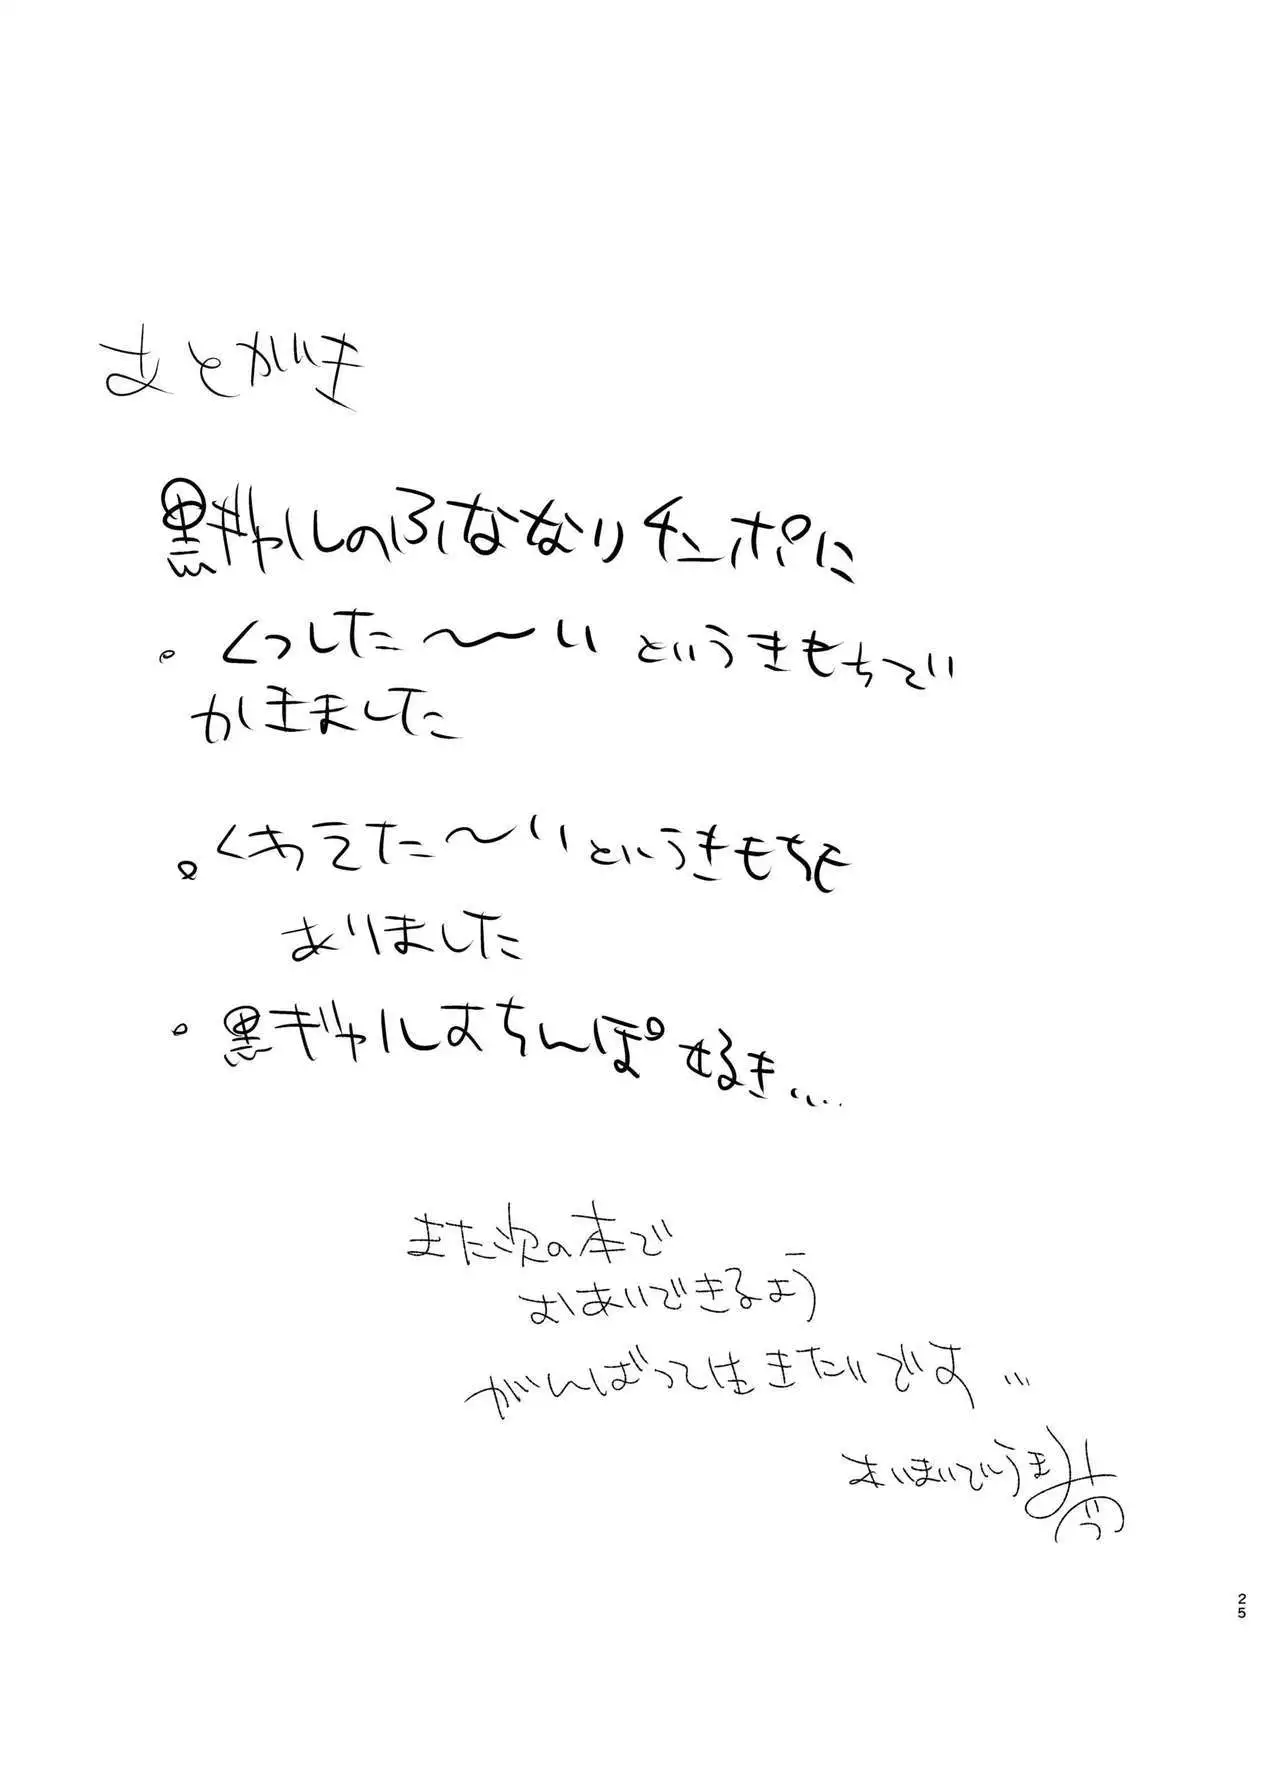 あとがき
黒ギャルのふななりチンポに
・くっした〜〜いというきもちで
かきました
。くわえた〜いというきもちも
ありました
・黒ギャルおちんぽ好き…
また次の本で
おあいできるよう
がんばって生きたいです…
25